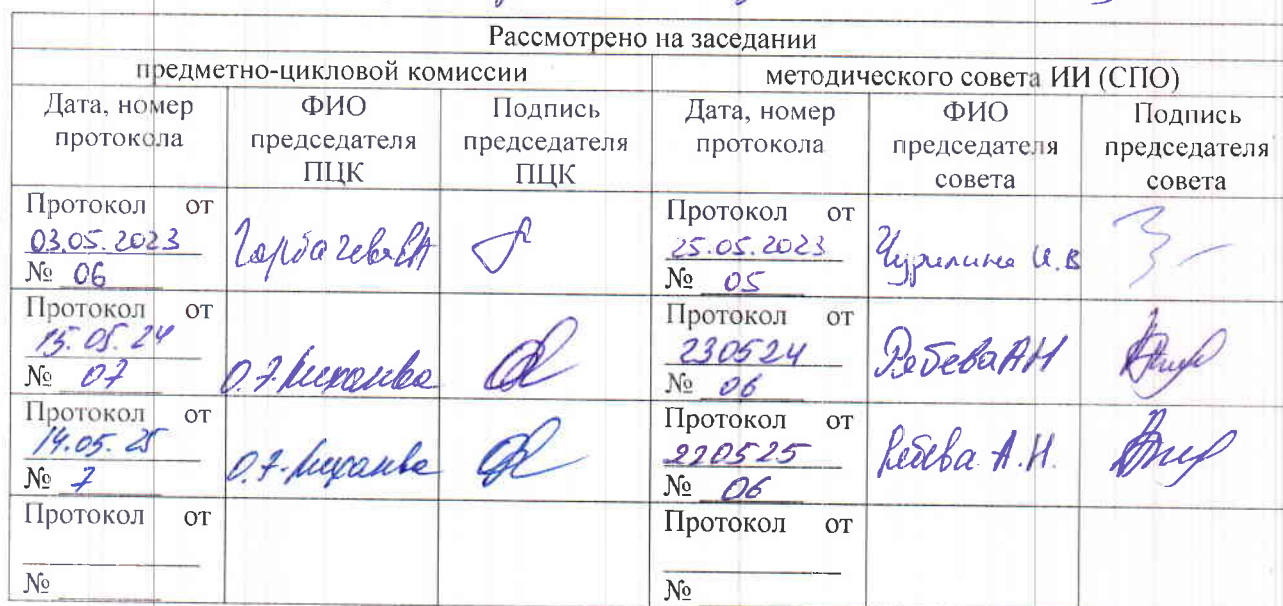 Рассмотрено на заседании
предметно-цикловой комиссии
методического совета ИИ (СПО)
Дата, номер протокола
ФИО председателя ПЦК
Подпись председателя ПЦК
Дата, номер протокола
ФИО председателя совета
Подпись председателя совета
Протокол от
03.05.2023
№ 06
Горбачева ЕА
Протокол от
25.05.2023
№ 05
Чурилина И.В
Протокол от
15.05.24
№ 07
Протокол от
230524
№ 06
Рябева АН
Протокол от
14.05.25
№ 7
Протокол от
220525
№ 06
Рябева А.Н.
Протокол от
№
Протокол от
№